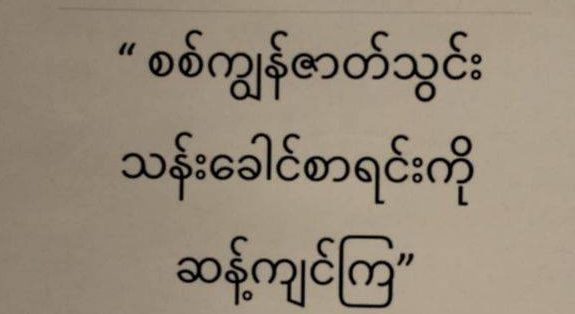 “ စစ်ကျွန်ဇာတ်သွင်း
သန်းခေါင်စာရင်းကို
ဆန့်ကျင်ကြ”